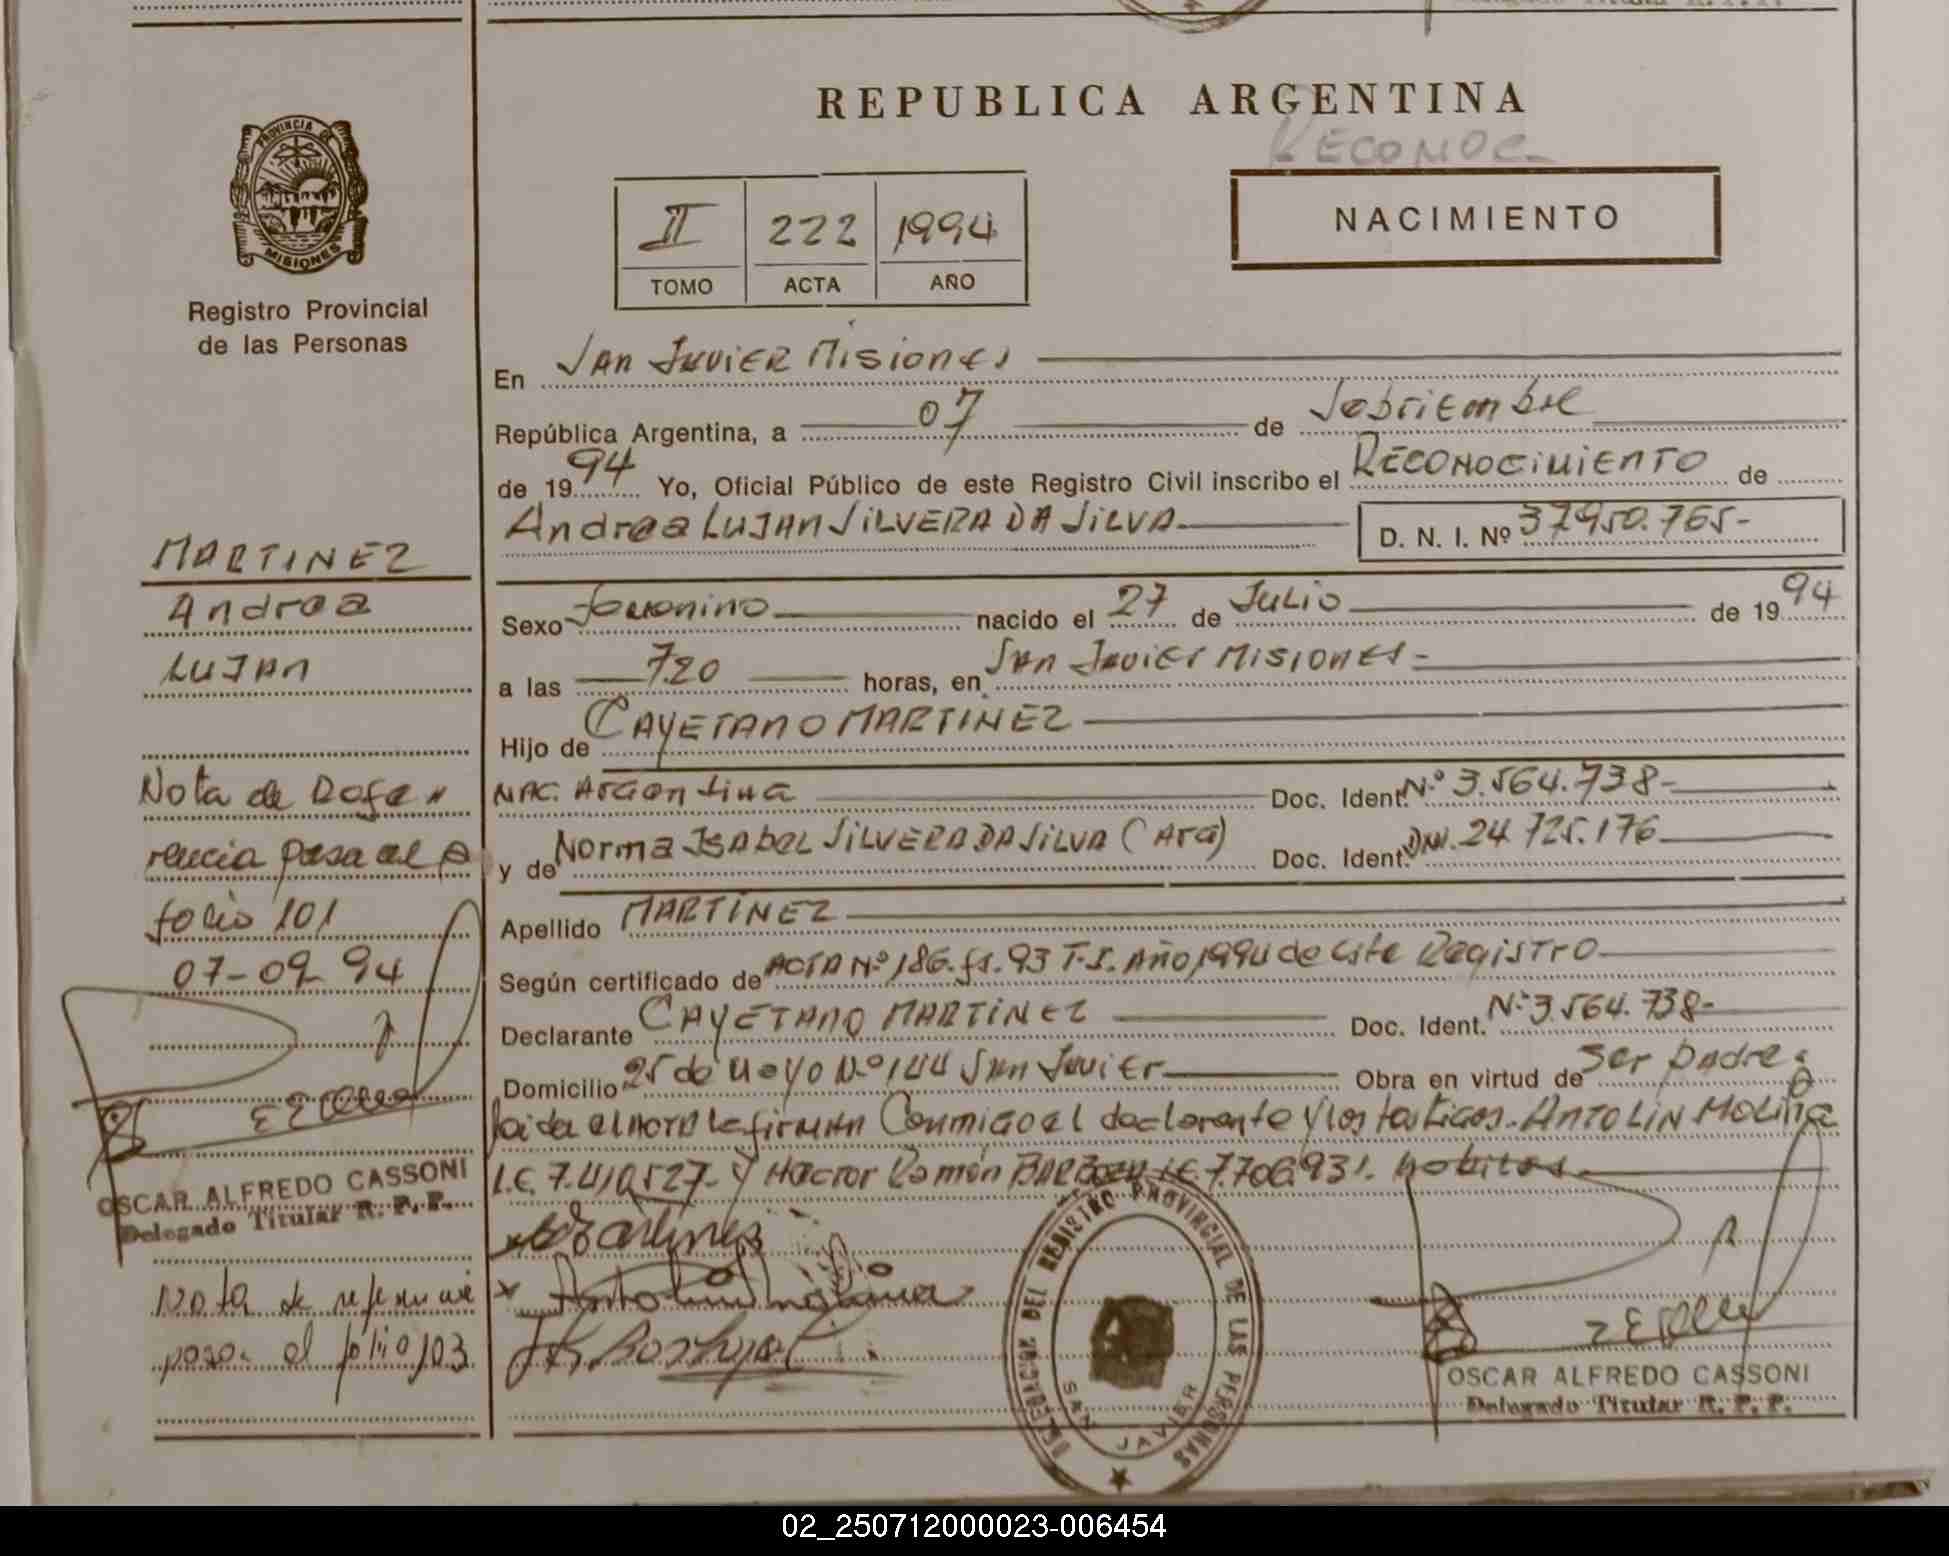 REPUBLICA ARGENTINA
RECONOC.
PROVINCIA DE
MISIONES
Registro Provincial
de las Personas
II 222 1994
TOMO ACTA AÑO
NACIMIENTO
En San Javier Misiones
República Argentina, a 07 de Sebtiembre
de 1994 Yo, Oficial Público de este Registro Civil inscribo el RECONOCIMIENTO de
Andrea LUJAN SILVERA DA SILVA D. N. I. Nº 37950.765-
MARTINEZ
Andrea
LUJAN
Sexo femenino nacido el 27 de Julio de 1994
a las 7.20 horas, en San Javier Misiones-
Hijo de CAYETANO MARTINEZ
Nac. Argentina Doc. Ident. Nº 3.564.738-
y de Norma Isabel SILVERA DA SILVA (Arg) Doc. Ident. DNI. 24 725.176
Apellido MARTINEZ
Según certificado de ACTA Nº 186. fs. 93 T-I. Año 1994 de este Registro
Declarante CAYETANO MARTINEZ Doc. Ident. Nº 3.564.738-
Domicilio 25 de Mayo Nº 144 San Javier Obra en virtud de ser padre.
Leida el acta la firman Conmigo el declarante y los testigos. ANTOLIN MOLINA
I.E. 7.410527- y Hector Ramón BARBOZA I.E. 7.706.931. habiles
Nota de Refe
rencia pasa al
folio 101
07-09-94
OSCAR ALFREDO CASSONI
Delegado Titular R. P. P.
Nota de referencia
pasa al folio 103
Martinez
Antolin Molina
DELEGACION DEL REGISTRO PROVINCIAL DE LAS PERSONAS
SAN JAVIER
OSCAR ALFREDO CASSONI
Delegado Titular R. P. P.
02_250712000023-006454